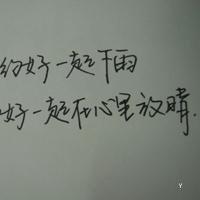 约好一起下雨
好一起在心里放晴.
Y